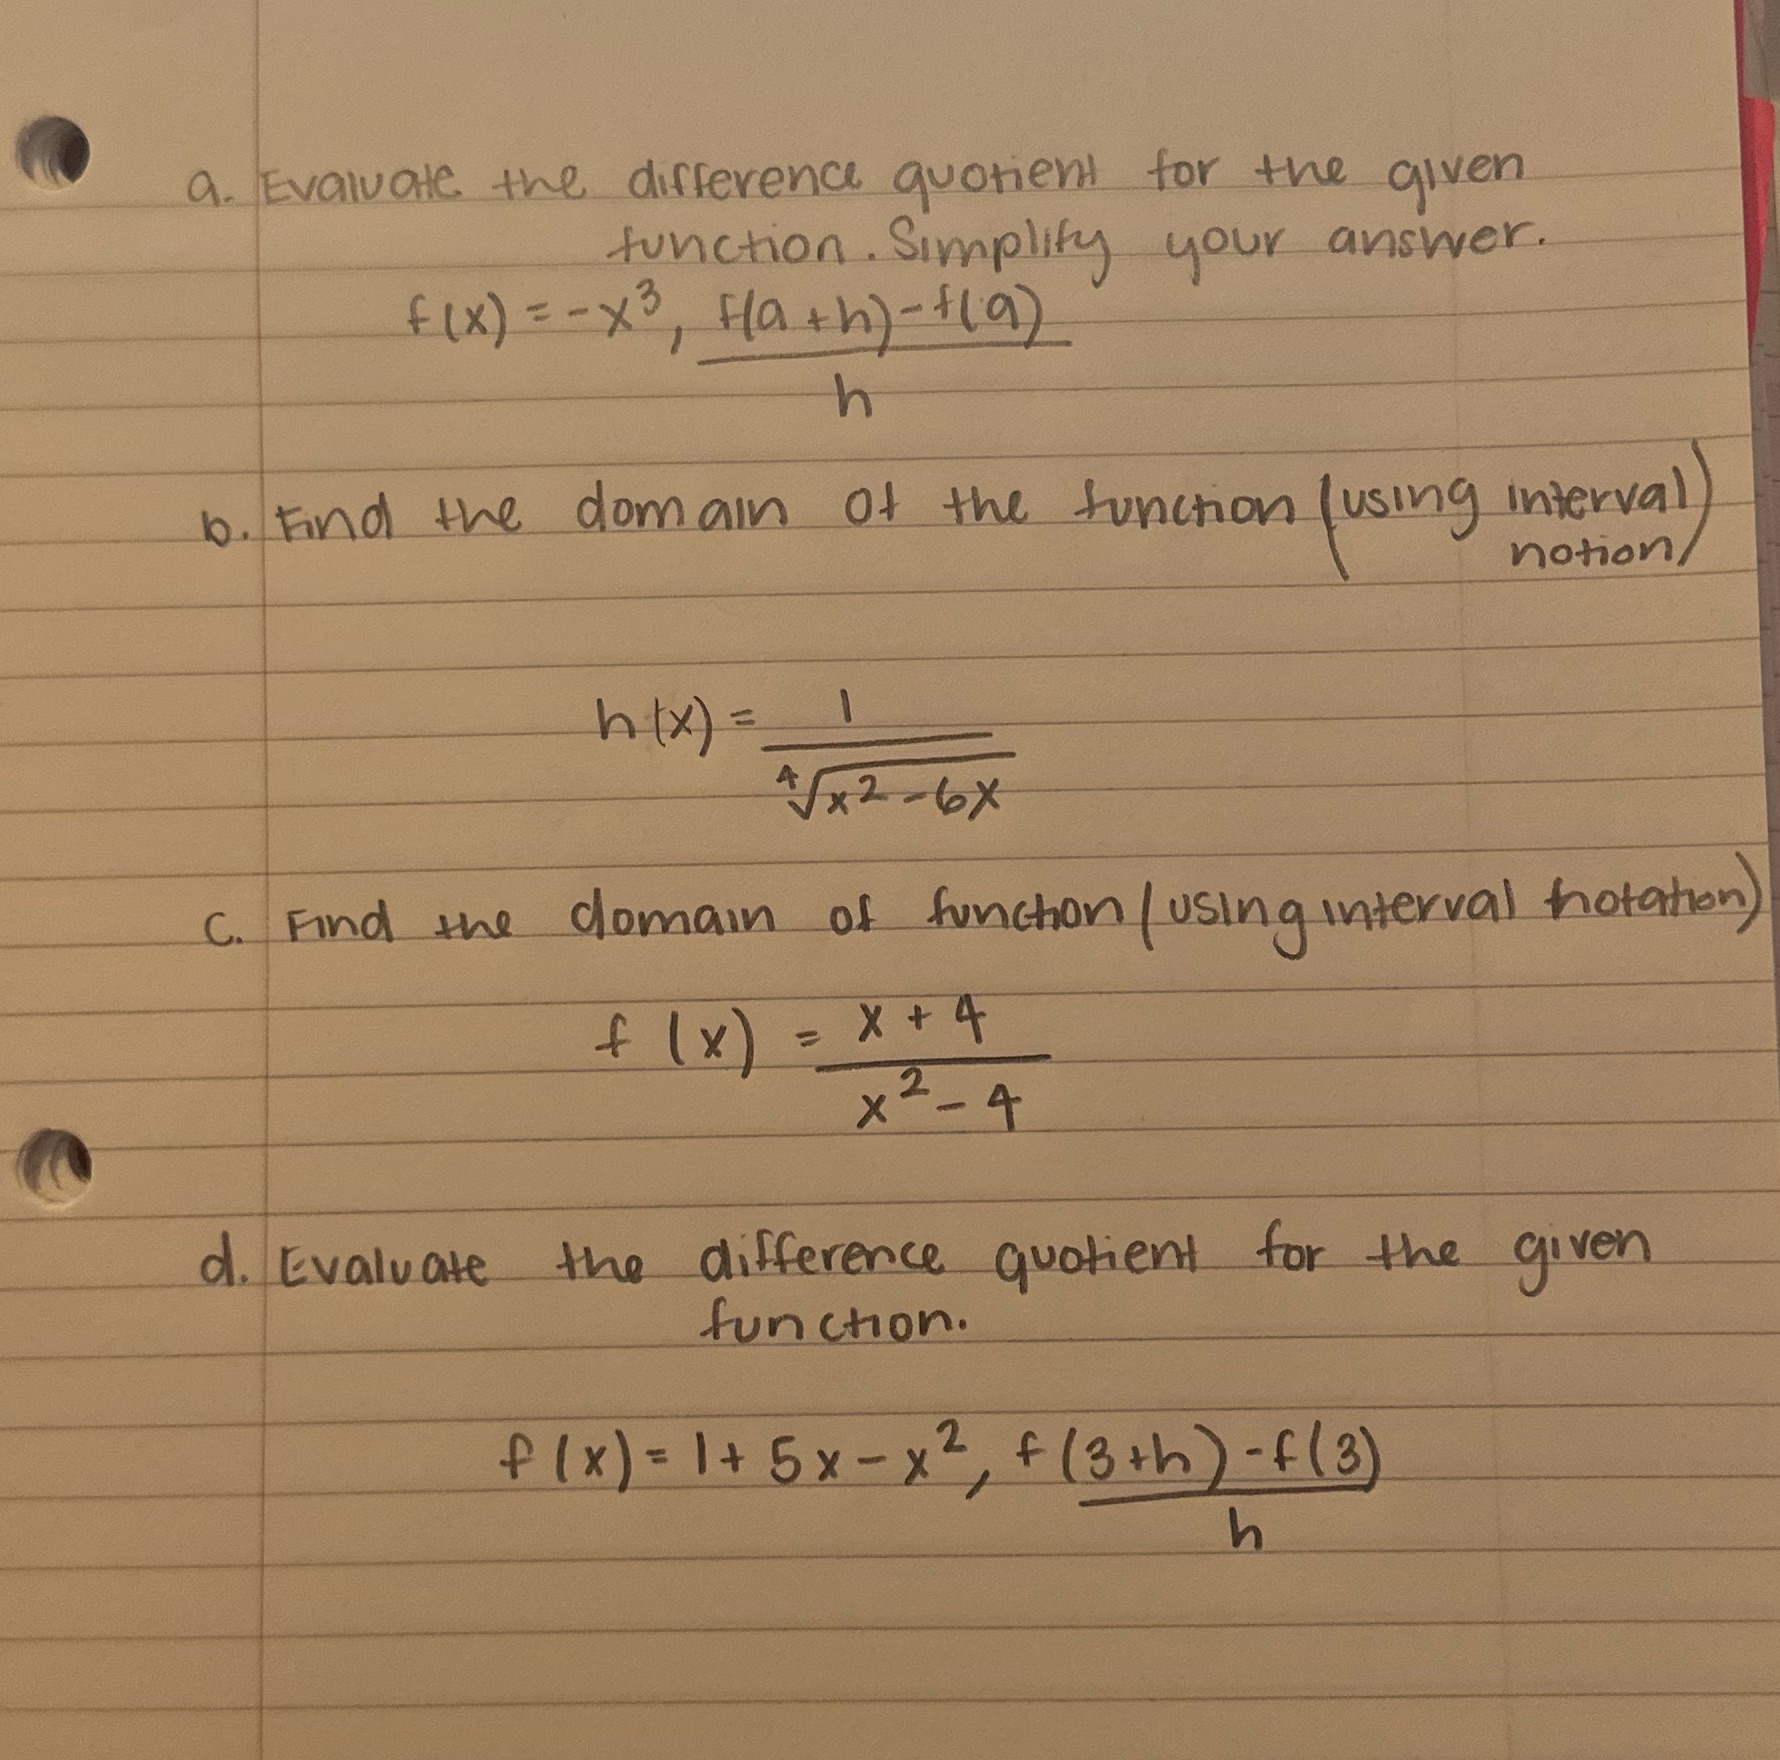 a. Evaluate the difference quotient for the given
function. Simplify your answer.
f(x) = -x³, f(a+h)-f(a)
h
b. Find the domain of the function (using interval
notion)
h(x) = 1
∜x²-6x
c. Find the domain of function (using interval notation)
f(x) = x + 4
x² - 4
d. Evaluate the difference quotient for the given
function.
f(x) = 1 + 5x - x², f(3+h)-f(3)
h